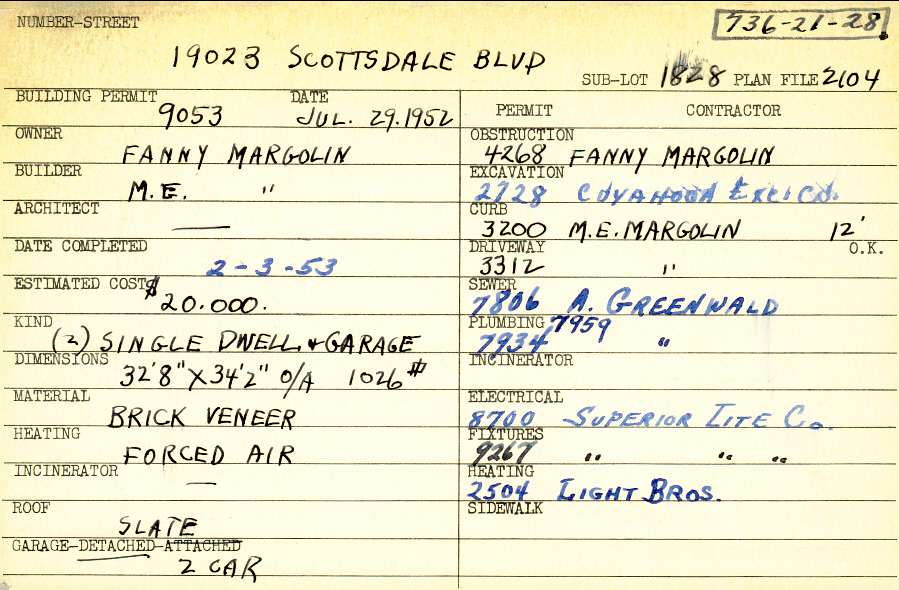 NUMBER-STREET
736-21-28
19023 SCOTTSDALE BLVD
SUB-LOT 1828 PLAN FILE 2104
BUILDING PERMIT DATE
9053 JUL. 29.1952
OWNER
FANNY MARGOLIN
BUILDER
M.E. "
ARCHITECT
—
DATE COMPLETED
2-3-53
ESTIMATED COST $
20.000.
KIND
(2) SINGLE DWELL. & GARAGE
DIMENSIONS
32'8" X 34'2" O/A 1026 #
MATERIAL
BRICK VENEER
HEATING
FORCED AIR
INCINERATOR
—
ROOF
SLATE
GARAGE-DETACHED-ATTACHED
2 CAR
PERMIT CONTRACTOR
OBSTRUCTION
4268 FANNY MARGOLIN
EXCAVATION
2728 CUYAHOGA EXC. CO.
CURB
3200 M.E. MARGOLIN 12'
DRIVEWAY O.K.
3312 "
SEWER
7806 A. GREENWALD
PLUMBING 7959
7934 "
INCINERATOR
ELECTRICAL
8700 SUPERIOR LITE Co.
FIXTURES
9267 " " "
HEATING
2504 LIGHT BROS.
SIDEWALK